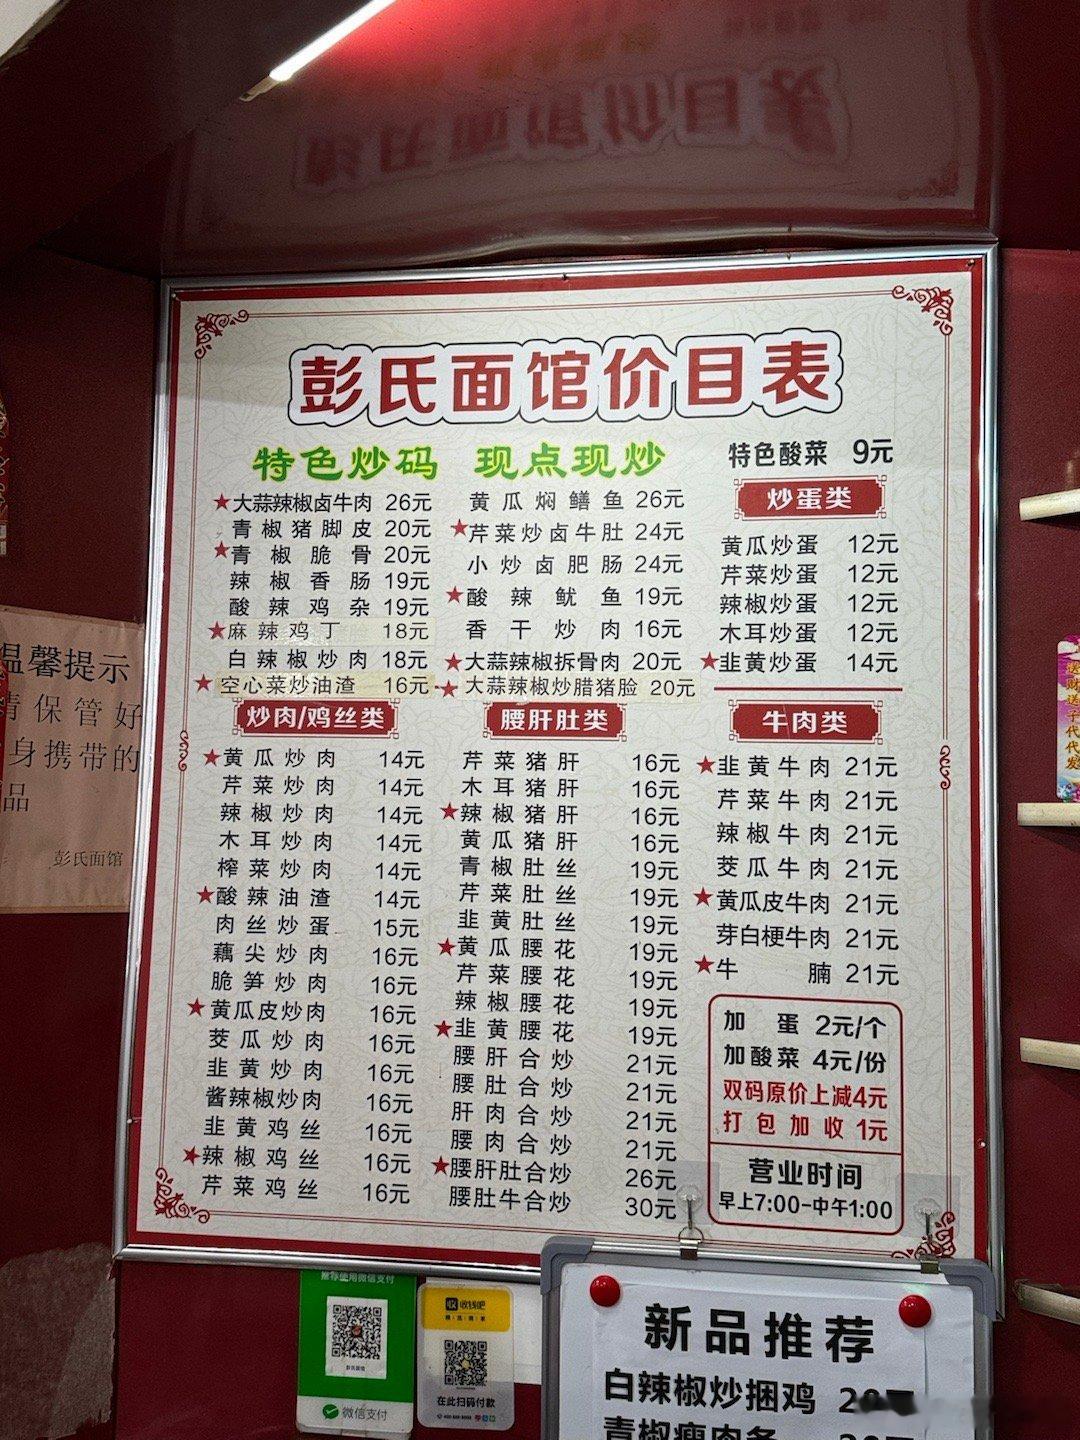 彭氏面馆价目表
特色炒码 现点现炒
★大蒜辣椒卤牛肉 26元
青椒猪脚皮 20元
★青椒脆骨 20元
辣椒香肠 19元
酸辣鸡杂 19元
★麻辣鸡丁 18元
白辣椒炒肉 18元
★空心菜炒油渣 16元
黄瓜焖鳝鱼 26元
★芹菜炒卤牛肚 24元
小炒卤肥肠 24元
★酸辣鱿鱼 19元
香干炒肉 16元
★大蒜辣椒拆骨肉 20元
★大蒜辣椒炒腊猪脸 20元
特色酸菜 9元
炒蛋类
黄瓜炒蛋 12元
芹菜炒蛋 12元
辣椒炒蛋 12元
木耳炒蛋 12元
★韭黄炒蛋 14元
炒肉/鸡丝类
★黄瓜炒肉 14元
芹菜炒肉 14元
辣椒炒肉 14元
木耳炒肉 14元
榨菜炒肉 14元
★酸辣油渣 14元
肉丝炒蛋 15元
藕尖炒肉 16元
脆笋炒肉 16元
★黄瓜皮炒肉 16元
茭瓜炒肉 16元
韭黄炒肉 16元
酱辣椒炒肉 16元
韭黄鸡丝 16元
★辣椒鸡丝 16元
芹菜鸡丝 16元
腰肝肚类
芹菜猪肝 16元
木耳猪肝 16元
★辣椒猪肝 16元
黄瓜猪肝 16元
青椒肚丝 19元
芹菜肚丝 19元
韭黄肚丝 19元
★黄瓜腰花 19元
芹菜腰花 19元
辣椒腰花 19元
★韭黄腰花 19元
腰肝合炒 21元
腰肚合炒 21元
肝肉合炒 21元
腰肉合炒 21元
★腰肝肚合炒 26元
腰肚牛合炒 30元
牛肉类
★韭黄牛肉 21元
芹菜牛肉 21元
辣椒牛肉 21元
茭瓜牛肉 21元
★黄瓜皮牛肉 21元
芽白梗牛肉 21元
★牛腩 21元
加蛋 2元/个
加酸菜 4元/份
双码原价上减4元
打包加收1元
营业时间
早上7:00-中午1:00
温馨提示
请保管好
身携带的
品
彭氏面馆
送财送子代代发
推荐使用微信支付
微信支付
收钱吧
在此扫码付款
新品推荐
白辣椒炒捆鸡
青椒瘦肉条